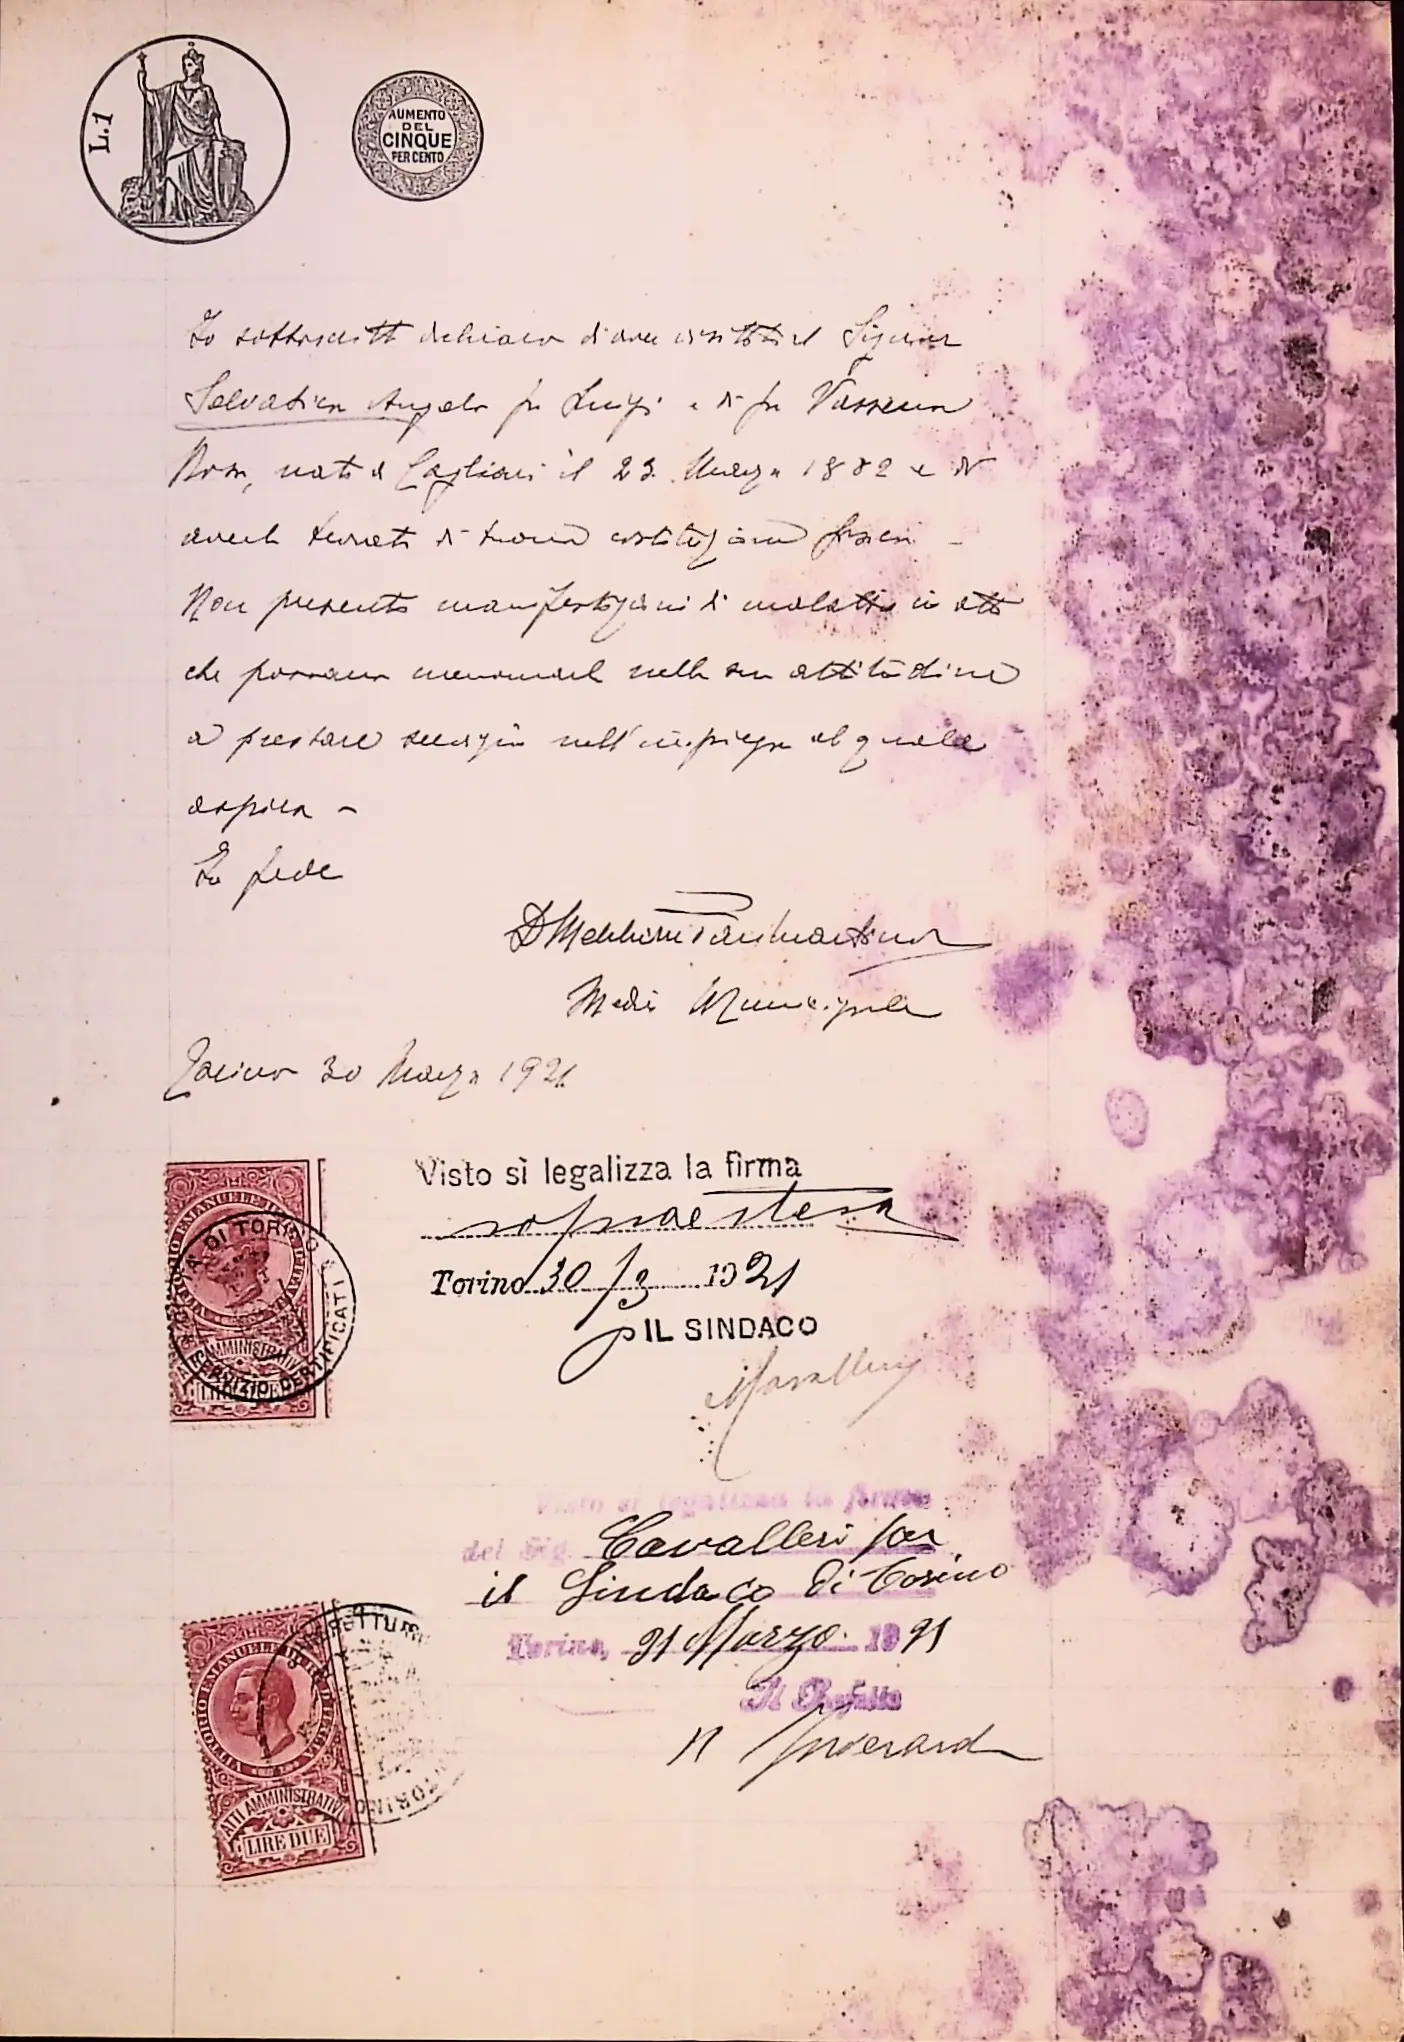 L.1
AUMENTO
DEL
CINQUE
PER CENTO
Io sottoscritt dichiaro d'aver visitato il Signor
Salvatico Angelo fu Luigi e di fu Vassena
Rosa, nato a Cagliari il 23 Marzo 1882 e di
averlo di buona costituzione
Non presenta manifestazioni di malattia in atto
che possano menomarl nella sua attitudine
a prestare servizio nell'impiego al quale
aspira -
In fede
D Melchiorre Sanmartino
Medico Municipale
Torino 30 Marzo 1921
Visto si legalizza la firma
sopraestesa
Torino 30/3 1921
p IL SINDACO
Cavalleri
VITTORIO EMANUELE
CITTA' DI TORINO
SERVIZIO CERTIFICATI
ATTI AMMINISTRATIVI
LIRE DUE
Visto si legalizza la firma
del Sig. Cavalleri per
il Sindaco di Torino
Torino, 31 Marzo 1921
Il Prefetto
PREFETTURA
TORINO
VITTORIO EMANUELE III RE D'ITALIA
ATTI AMMINISTRATIVI
LIRE DUE